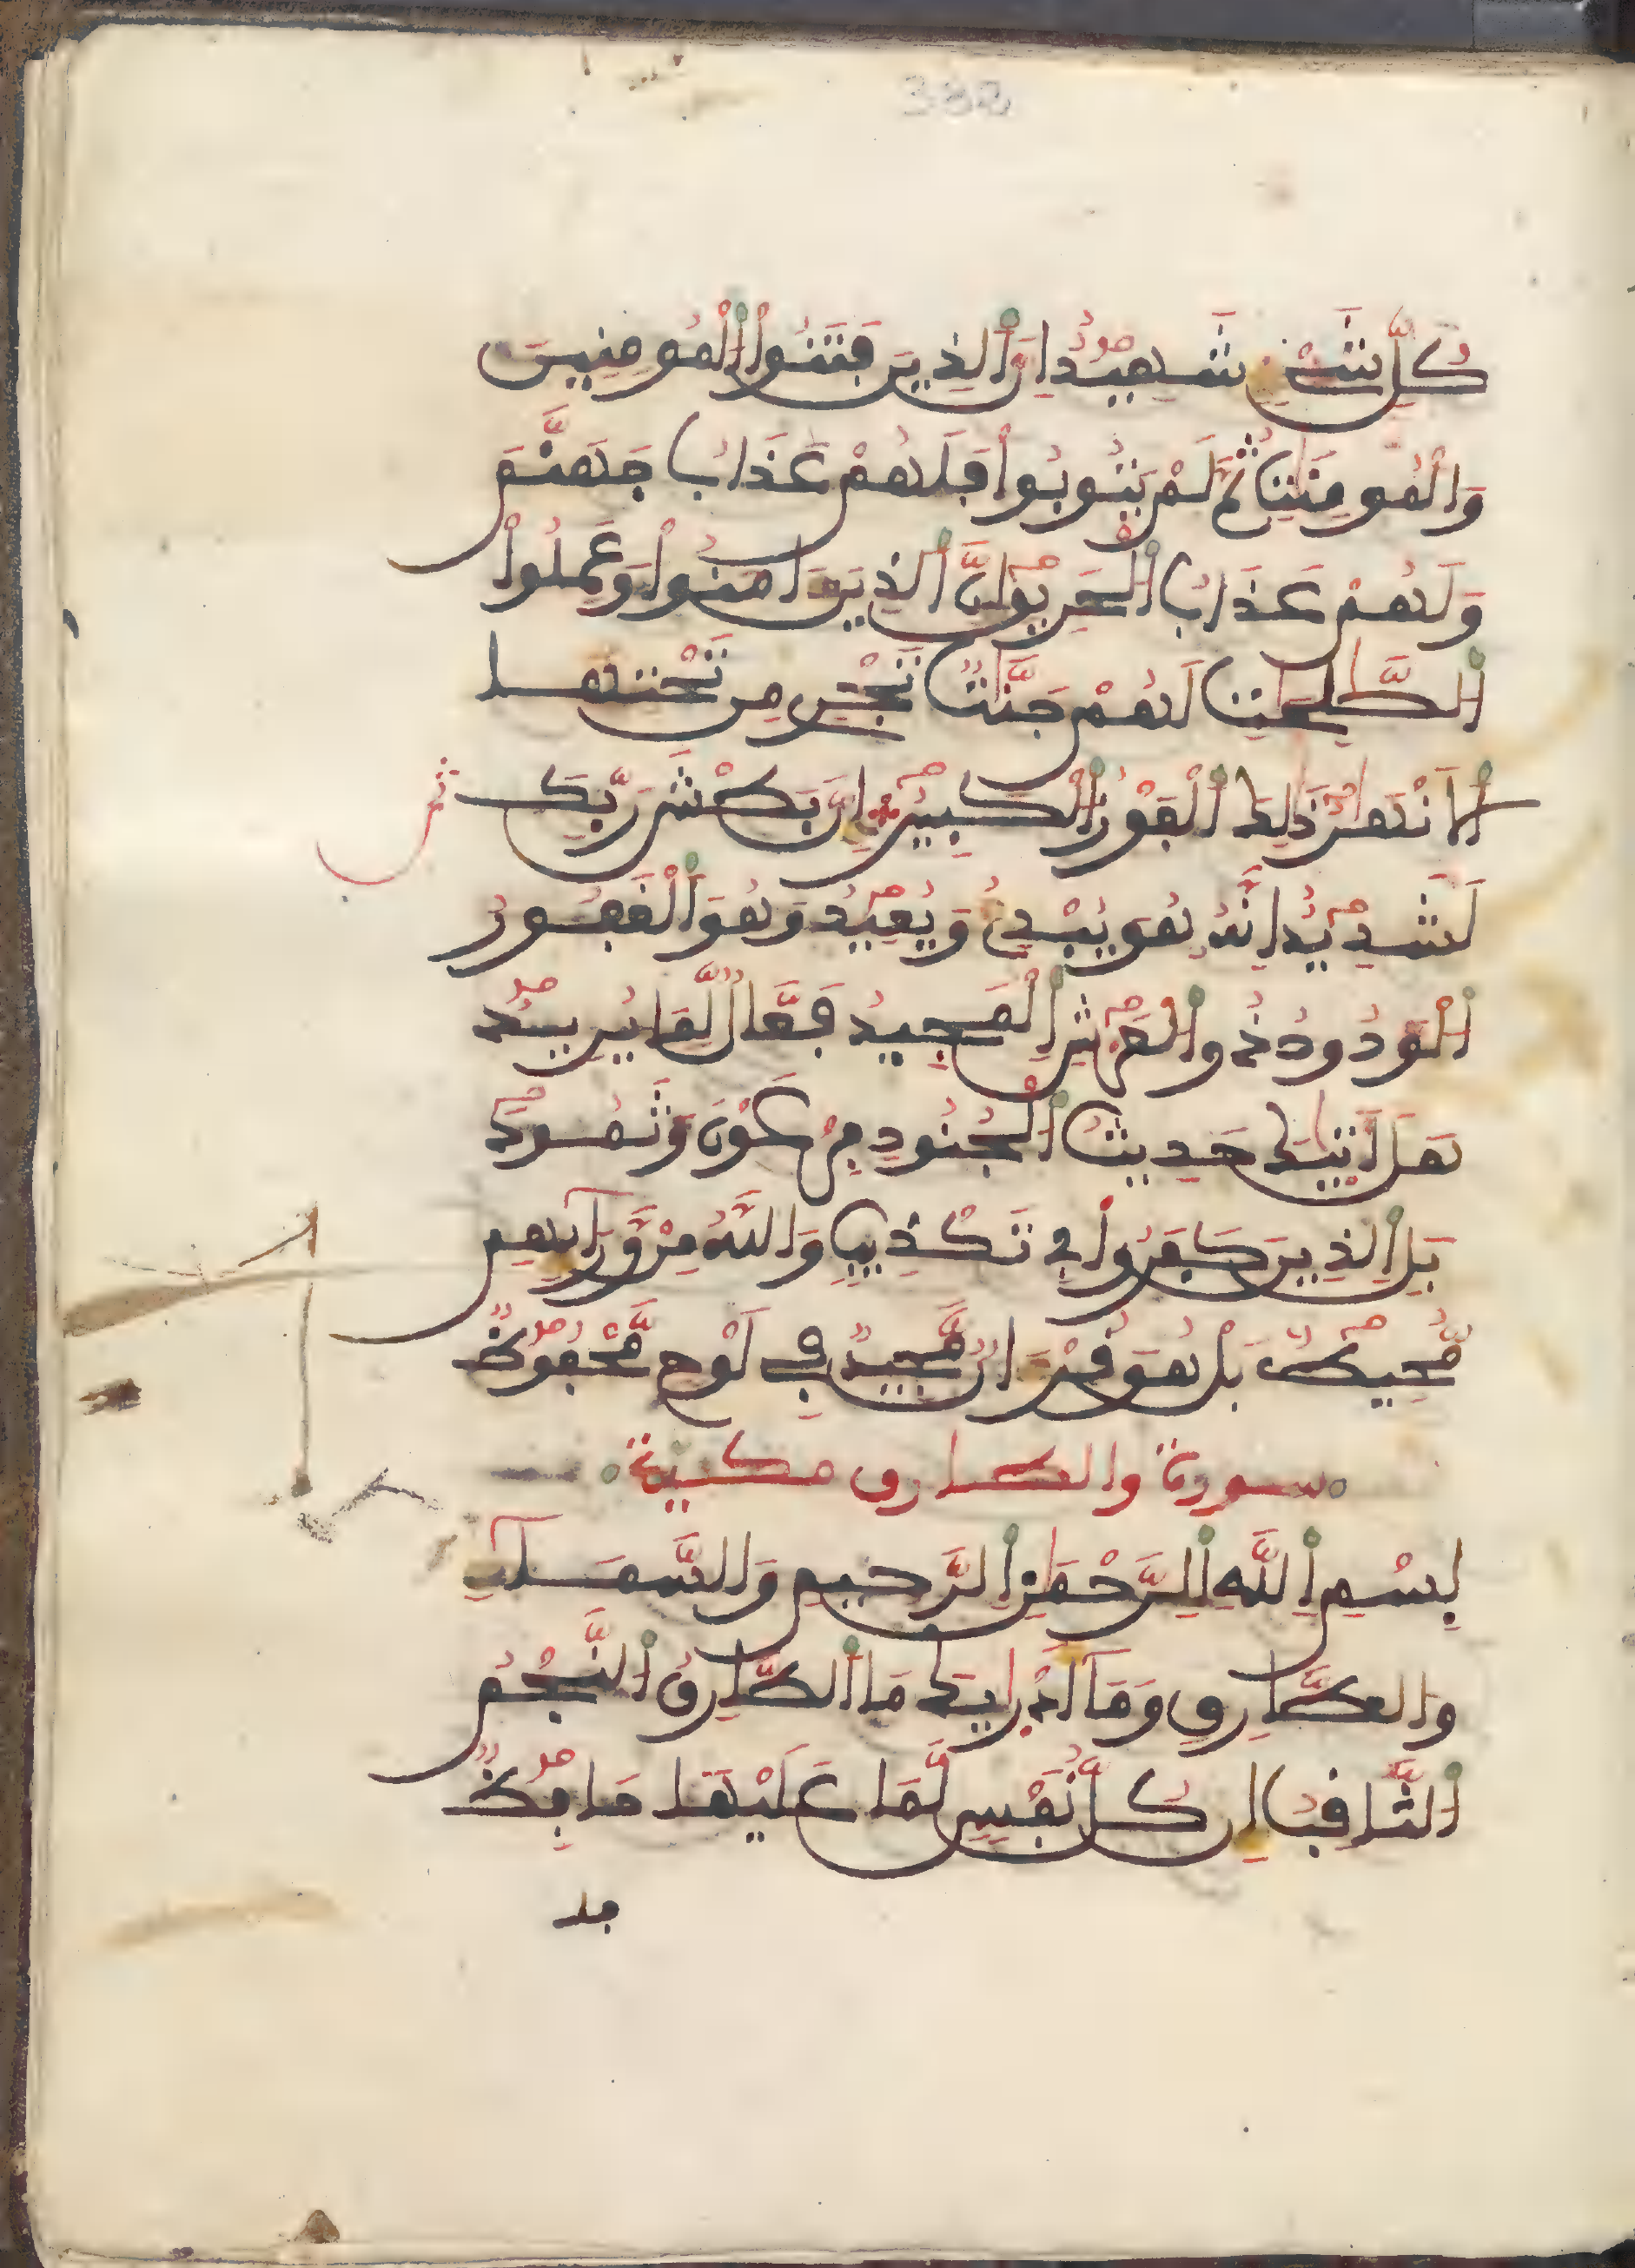 388
كُلِّ شَيْءٍ شَهِيدٌ اِنَّ اَلذِينَ فَتَنُواْ اُلْمُومِنِينَ
وَالْمُومِنَٰتِ ثُمَّ لَمْ يَتُوبُواْ فَلَهُمْ عَذَابُ جَهَنَّمَ
وَلَهُمْ عَذَابُ اُلْحَرِيقِ اِنَّ اَلذِينَ ءَامَنُواْ وَعَمِلُواْ
اُلصَّٰلِحَٰتِ لَهُمْ جَنَّٰتٌ تَجْرِے مِن تَحْتِهَا
اَلَانْهَٰرُ ذَٰلِكَ اَلْفَوْزُ اُلْكَبِيرُ اِنَّ بَطْشَ رَبِّكَ
ثمن
لَشَدِيدٌ اِنَّهُ هُوَ يُبْدِئُ وَيُعِيدُ وَهُوَ اَلْغَفُورُ
اُلْوَدُودُ ذُو اُلْعَرْشِ اِلْمَجِيدُ فَعَّالٌ لِّمَا يُرِيدُ
هَلَ اَتَيٰكَ حَدِيثُ اُلْجُنُودِ فِرْعَوْنَ وَثَمُودَ
بَلِ اِلذِينَ كَفَرُواْ فِے تَكْذِيبٍ وَاللَّهُ مِنْ وَّرَآئِهِم
مُّحِيطٌ بَلْ هُوَ قُرْءَانٌ مَّجِيدٌ فِے لَوْحٍ مَّحْفُوظٌ
سورة والطارق مكية
بِسْمِ اِللَّهِ اِلرَّحْمَٰنِ اِلرَّحِيمِ وَالسَّمَآءِ
وَالطَّارِقِ وَمَآ أَدْرَيٰكَ مَا اَلطَّارِقُ اُلنَّجْمُ
اُلثَّاقِبُ إِن كُلُّ نَفْسٍ لَّمَا عَلَيْهَا حَافِظٌ
فلـ